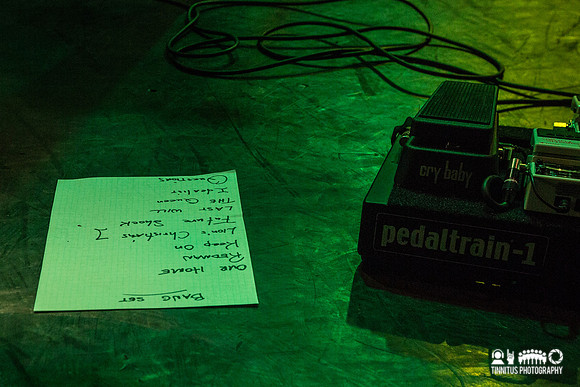 SET
OUR HOME
REDMAN
Keep On
Lion's Christians 7
Future Shock
LAST WILL
THE QUEEN
Idealist
Questions
cry baby
pedaltrain-1
TINNITUS PHOTOGRAPHY